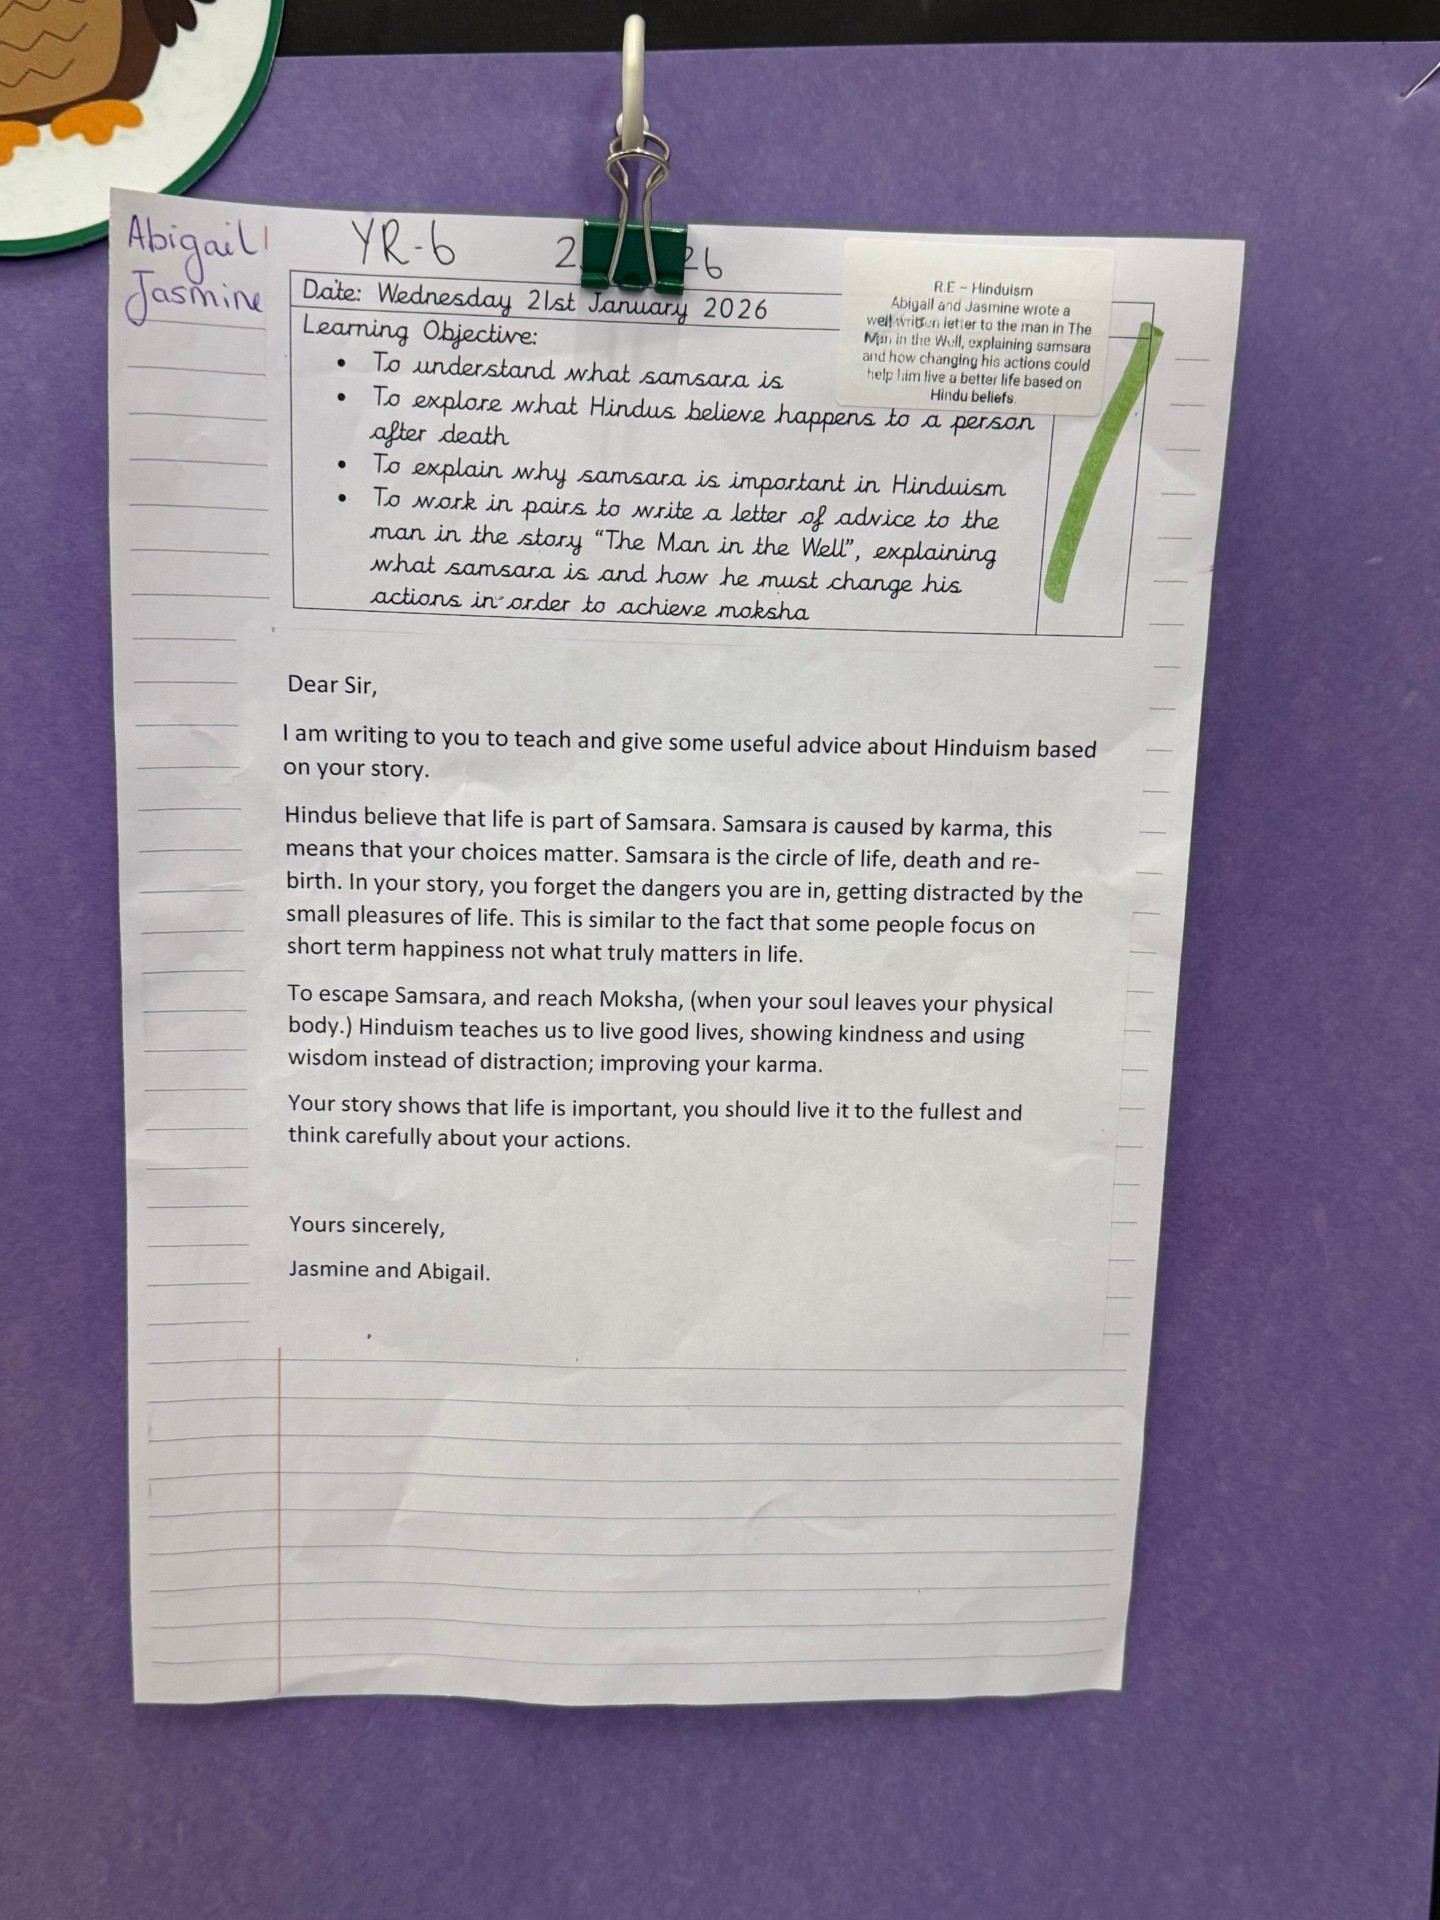 Abigail
Jasmine
YR-6
2 26
R.E – Hinduism
Abigail and Jasmine wrote a
well written letter to the man in The
Man in the Well, explaining samsara
and how changing his actions could
help him live a better life based on
Hindu beliefs.
Date: Wednesday 21st January 2026
Learning Objective:
• To understand what samsara is
• To explore what Hindus believe happens to a person
after death
• To explain why samsara is important in Hinduism
• To work in pairs to write a letter of advice to the
man in the story “The Man in the Well”, explaining
what samsara is and how he must change his
actions in order to achieve moksha
Dear Sir,
I am writing to you to teach and give some useful advice about Hinduism based
on your story.
Hindus believe that life is part of Samsara. Samsara is caused by karma, this
means that your choices matter. Samsara is the circle of life, death and re-
birth. In your story, you forget the dangers you are in, getting distracted by the
small pleasures of life. This is similar to the fact that some people focus on
short term happiness not what truly matters in life.
To escape Samsara, and reach Moksha, (when your soul leaves your physical
body.) Hinduism teaches us to live good lives, showing kindness and using
wisdom instead of distraction; improving your karma.
Your story shows that life is important, you should live it to the fullest and
think carefully about your actions.
Yours sincerely,
Jasmine and Abigail.